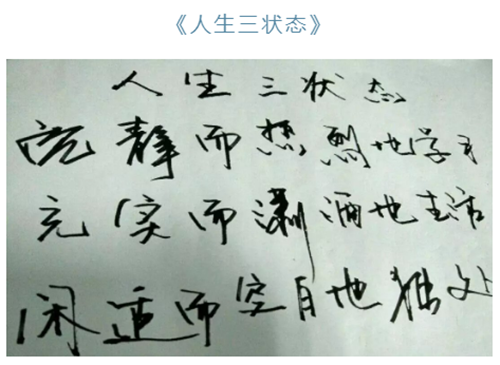 《人生三状态》
人生三状态
沉静而热烈地学习
充实而潇洒地生活
闲适而空自地独处